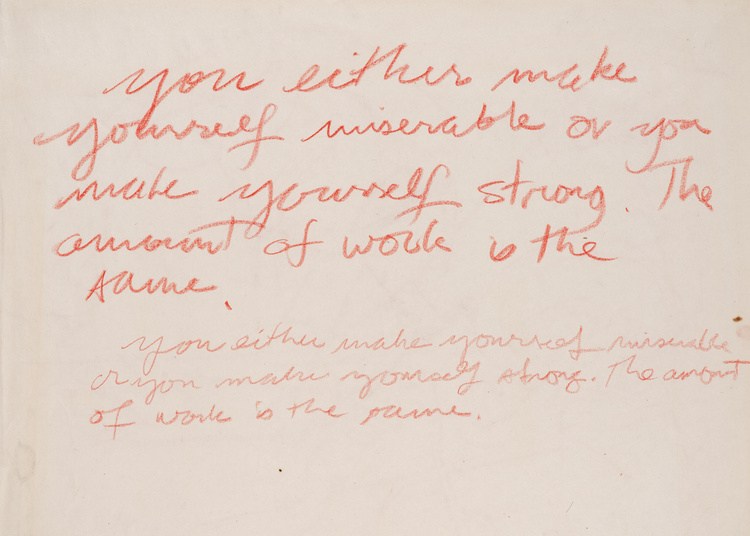 you either make
yourself miserable or you
make yourself strong. The
amount of work is the
same.
you either make yourself miserable
or you make yourself strong. The amount
of work is the same.